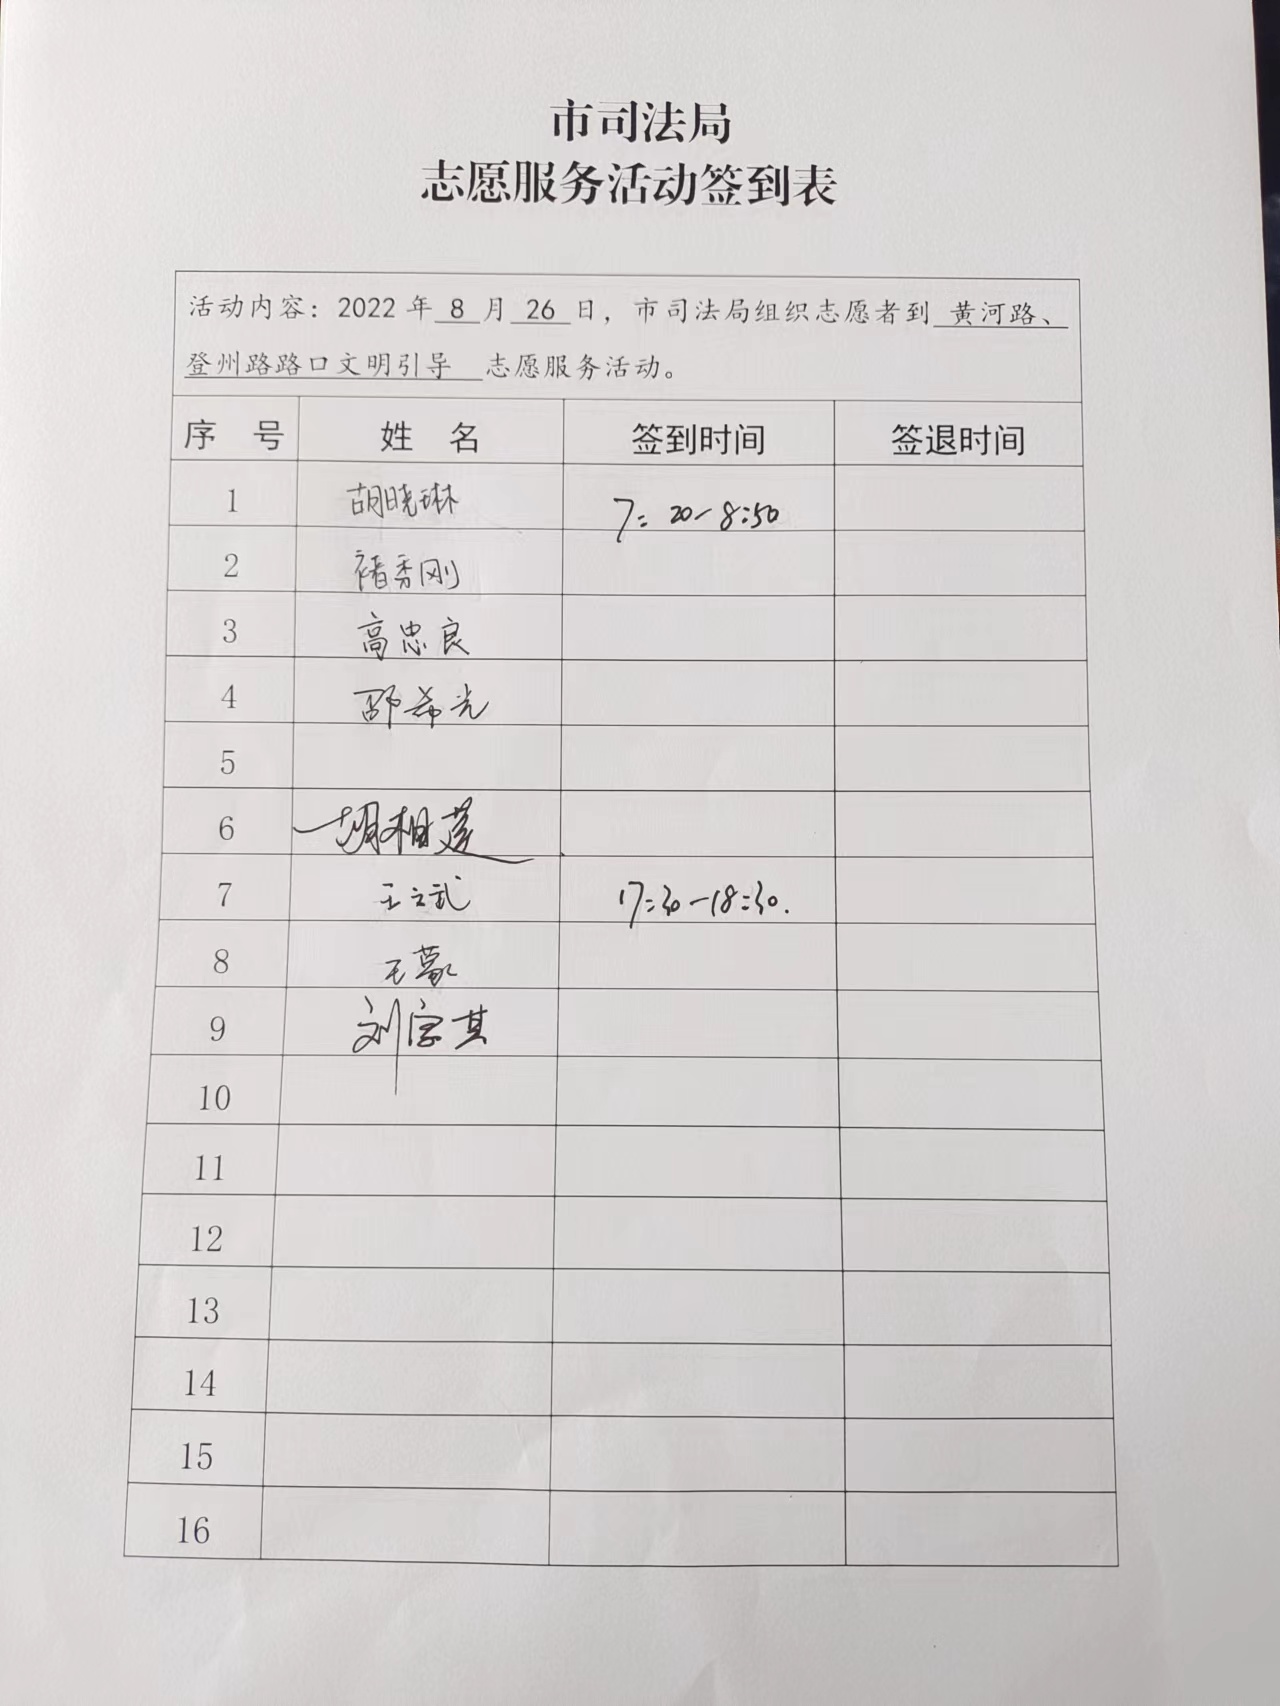 市司法局
志愿服务活动签到表
活动内容：2022 年 8 月 26 日，市司法局组织志愿者到 黄河路、
登州路路口文明引导 志愿服务活动。
序 号 姓 名 签到时间 签退时间
1 胡晓琳 7:20-8:50
2 褚秀刚
3 高忠良
4 邵希光
5
6 胡相莲
7 王立武 17:30-18:30.
8 王蒙
9 刘宗其
10
11
12
13
14
15
16